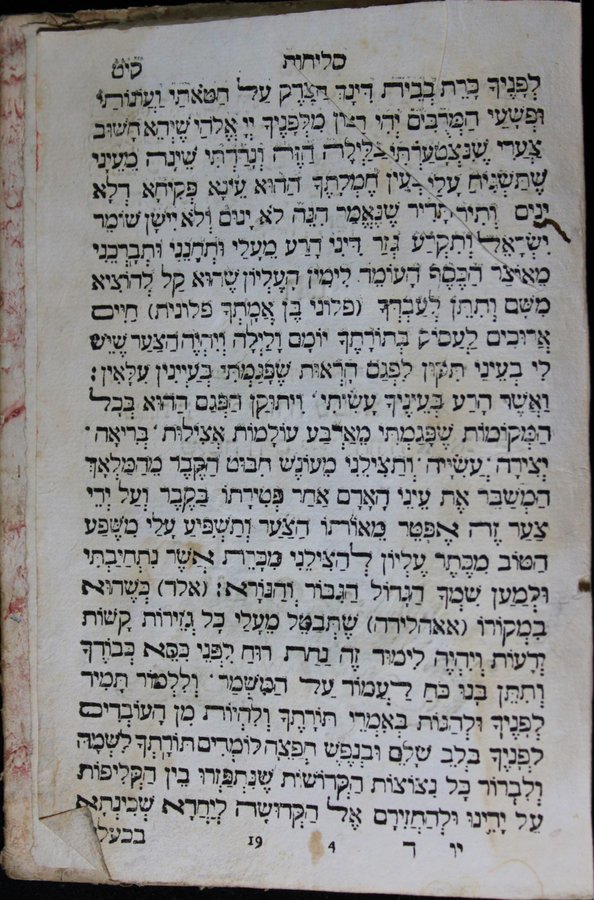 סליחות
קיט
לְפָנֶיךָ כָּרֵת בְּבֵית דִּינְךָ הַצֶּדֶק עַל חַטֹּאתַי וַעֲוֹנוֹתַי
וּפְשָׁעַי הַמְרֻבִּים יְהִי רָצוֹן מִלְּפָנֶיךָ יְיָ אֱלֹהַי שֶׁיְּהֵא חָשׁוּב
צַעֲרִי שֶׁנִּצְטַעַרְתִּי בַּלַּיְלָה הַזֶּה וְנָדַדְתִּי שֵׁינָה מֵעֵינַי
שֶׁתַּשְׁגִּיחַ עָלַי בְּעֵין חֶמְלָתֶךָ הַהוּא עֵינָא פְּקִיחָא דְּלָא
יָנִים וְתִיר תְּדִיר שֶׁנֶּאֱמַר הִנֵּה לֹא יָנוּם וְלֹא יִישָׁן שׁוֹמֵר
יִשְׂרָאֵל וְתִקְרַע גְּזַר דִּינִי הָרַע מֵעָלַי וּתְחָנֵּנִי וּתְבָרְכֵנִי
מֵאוֹצַר הַכֶּסֶף הָעוֹמֵד לִימִין הָעֶלְיוֹן שֶׁהוּא קַל לְהוֹצִיא
מִשָּׁם וְתִתֵּן לְעַבְדְּךָ (פלוני בֶּן אֲמָתְךָ פלונית) חַיִּים
אֲרוּכִים לַעֲסוֹק בְּתוֹרָתֶךָ יוֹמָם וָלַיְלָה וְיִהְיֶה הַצַּעַר שֶׁיֵּשׁ
לִי בְעֵינַי תִּקּוּן לִפְגַם הָרְאוּת שֶׁפָּגַמְתִּי בְּעֵיינִין עִלָּאִין:
וַאֲשֶׁר הָרַע בְּעֵינֶיךָ עָשִׂיתִי' וִיתוּקַן הַפְּגַם הַהוּא בְּכָל
הַמְּקוֹמוֹת שֶׁפָּגַמְתִּי מֵאַרְבַּע עוֹלָמוֹת אֲצִילוּת' בְּרִיאָה'
יְצִירָה' עֲשִׂיָּה' וְתַצִּילֵנִי מֵעוֹנֶשׁ חִבּוּט הַקֶּבֶר מֵהַמַּלְאָךְ
הַמְשַׁבֵּר אֶת עֵינֵי הָאָדָם אַחַר פְּטִירָתוֹ בַּקֶּבֶר וְעַל יְדֵי
צַעַר זֶה אֶפָּטֵר מֵאוֹתוֹ הַצַּעַר וְתַשְׁפִּיעַ עָלַי מִשֶּׁפַע
הַטּוֹב מִכֶּתֶר עֶלְיוֹן לְהַצִּילֵנִי מִכָּרֵת אֲשֶׁר נִתְחַיַּבְתִּי
וּלְמַעַן שִׁמְךָ הַגָּדוֹל הַגִּבּוֹר וְהַנּוֹרָא: (אלד) כְּשֶׁהוּא
בִּמְקוֹרוֹ (אאהלירה) שֶׁתְּבַטֵּל מֵעָלַי כָּל גְּזֵירוֹת קָשׁוֹת
וְרָעוֹת וְיִהְיֶה לִימוּד זֶה נַחַת רוּחַ לִפְנֵי כִּסֵּא כְּבוֹדֶךָ
וְתִתֵּן בָּנוּ כֹּחַ לַעֲמוֹד עַל הַמִּשְׁמָר' וְלִלְמוֹד תָּמִיד
לְפָנֶיךָ וְלַהֲגוֹת בְּאִמְרֵי תּוֹרָתֶךָ וְלִהְיוֹת מִן הָעוֹבְדִים
לְפָנֶיךָ בְּלֵב שָׁלֵם וּבְנֶפֶשׁ חֲפֵצָה לוֹמְדִים תּוֹרָתְךָ לִשְׁמָהּ
וְלִבְרוֹר כָּל נִצוֹצוֹת הַקְּדוֹשׁוֹת שֶׁנִּתְפַּזְּרוּ בֵּין הַקְּלִיפּוֹת
עַל יָדֵינוּ וּלְהַחֲזִירָם אֶל הַקְּדוּשָׁה לְיַחֲדָא שְׁכִינְתָּא
יו ד 4 19 בבעל